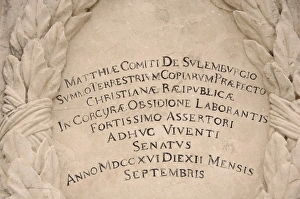 MATTHIÆ COMITI DE SVLEMBVRGIO
SVMMO TERRESTRIVM COPIARVM PRÆFECTO
CHRISTIANÆ REIPVBLICÆ
IN CORCYRÆ OBSIDIONE LABORANTIS
FORTISSIMO ASSERTORI
ADHVC VIVENTI
SENATVS
ANNO MDCCXVI DIE XII MENSIS
SEPTEMBRIS